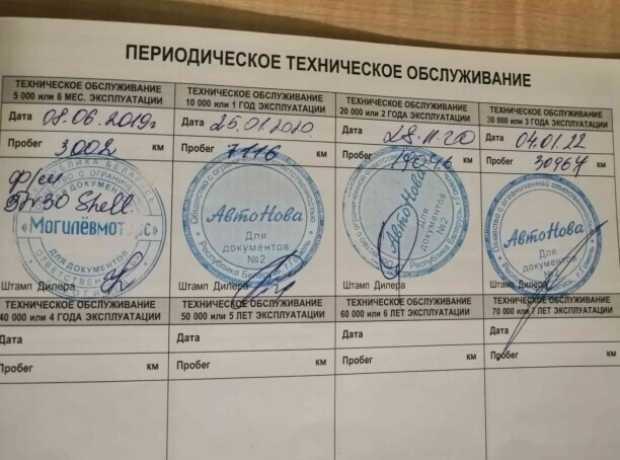 ПЕРИОДИЧЕСКОЕ ТЕХНИЧЕСКОЕ ОБСЛУЖИВАНИЕ
ТЕХНИЧЕСКОЕ ОБСЛУЖИВАНИЕ
5 000 или 6 МЕС. ЭКСПЛУАТАЦИИ
Дата 08.06.2019г
Пробег 3008 км
Shell
«Могилёвмоторс»
ДЛЯ ДОКУМЕНТОВ
Штамп Дилера
ТЕХНИЧЕСКОЕ ОБСЛУЖИВАНИЕ
10 000 или 1 ГОД ЭКСПЛУАТАЦИИ
Дата 25.01.2020
Пробег 7116 км
АвтоНова
Для
документов
№2
Республика Беларусь
Штамп Дилера
ТЕХНИЧЕСКОЕ ОБСЛУЖИВАНИЕ
20 000 или 2 ГОДА ЭКСПЛУАТАЦИИ
Дата 28.11.20
Пробег км
АвтоНова
Для
документов
№2
Штамп Дилера
ТЕХНИЧЕСКОЕ ОБСЛУЖИВАНИЕ
30 000 или 3 ГОДА ЭКСПЛУАТАЦИИ
Дата 04.01.22
Пробег 30964 км
АвтоНова
Для
документов
Штамп Дилера
ТЕХНИЧЕСКОЕ ОБСЛУЖИВАНИЕ
40 000 или 4 ГОДА ЭКСПЛУАТАЦИИ
Дата
Пробег км
ТЕХНИЧЕСКОЕ ОБСЛУЖИВАНИЕ
50 000 или 5 ЛЕТ ЭКСПЛУАТАЦИИ
Дата
Пробег км
ТЕХНИЧЕСКОЕ ОБСЛУЖИВАНИЕ
60 000 или 6 ЛЕТ ЭКСПЛУАТАЦИИ
Дата
Пробег км
ТЕХНИЧЕСКОЕ ОБСЛУЖИВАНИЕ
70 000 или 7 ЛЕТ ЭКСПЛУАТАЦИИ
Дата
Пробег км